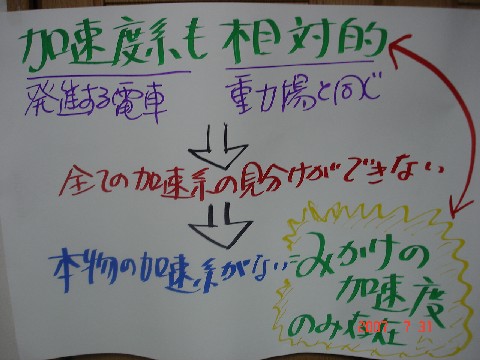 加速度系も相対的
発進する電車 重力場と同じ
全ての加速系の見分けができない
本物の加速系がない=みかけの
加速度
のみ存在
2007. 7 31